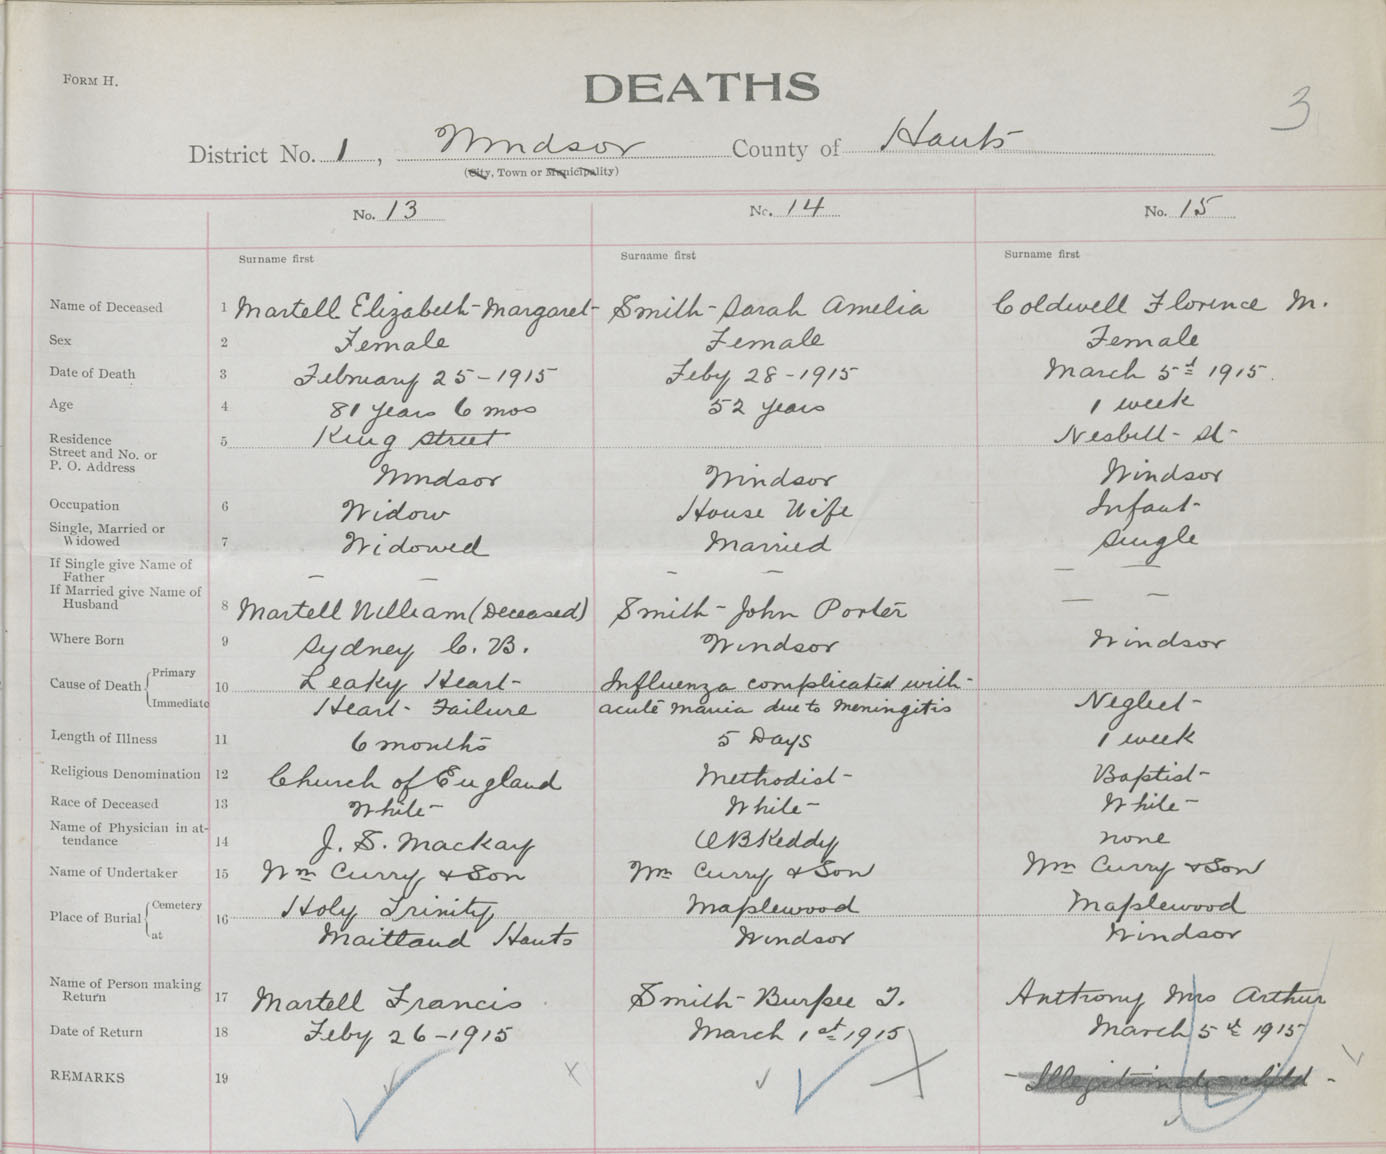 FORM H.
DEATHS
3
District No. 1, Windsor County of Hants
(City, Town or Municipality)
No. 13 No. 14 No. 15
Surname first Surname first Surname first
Name of Deceased 1 Martell Elizabeth-Margaret- Smith-Sarah Amelia Coldwell Florence M.
Sex 2 Female Female Female
Date of Death 3 February 25-1915 Feby 28-1915 March 5th 1915.
Age 4 81 years 6 mos 52 years 1 week
Residence 5 King Street Nesbitt-St-
Street and No. or
P. O. Address Windsor Windsor Windsor
Occupation 6 Widow House Wife Infant-
Single, Married or
Widowed 7 Widowed Married Single
If Single give Name of
Father – – – – – –
If Married give Name of
Husband 8 Martell William (Deceased) Smith-John Porter – –
Where Born 9 Sydney C. B. Windsor Windsor
Cause of Death { Primary 10 Leaky Heart- Influenza complicated with-
Immediate Heart-Failure acute mania due to meningitis Neglect-
Length of Illness 11 6 months 5 Days 1 week
Religious Denomination 12 Church of England Methodist- Baptist-
Race of Deceased 13 White- White- White-
Name of Physician in at-
tendance 14 J. S. Mackay OB Keddy none
Name of Undertaker 15 Wm Curry & Son Wm Curry & Son Wm Curry & Son
Place of Burial { Cemetery 16 Holy Trinity Maplewood Maplewood
at Maitland Hants Windsor Windsor
Name of Person making
Return 17 Martell Francis Smith-Burpee T. Anthony Mrs Arthur
Date of Return 18 Feby 26-1915 March 1st 1915 March 5th 1915
REMARKS 19 - Illegitimate child -